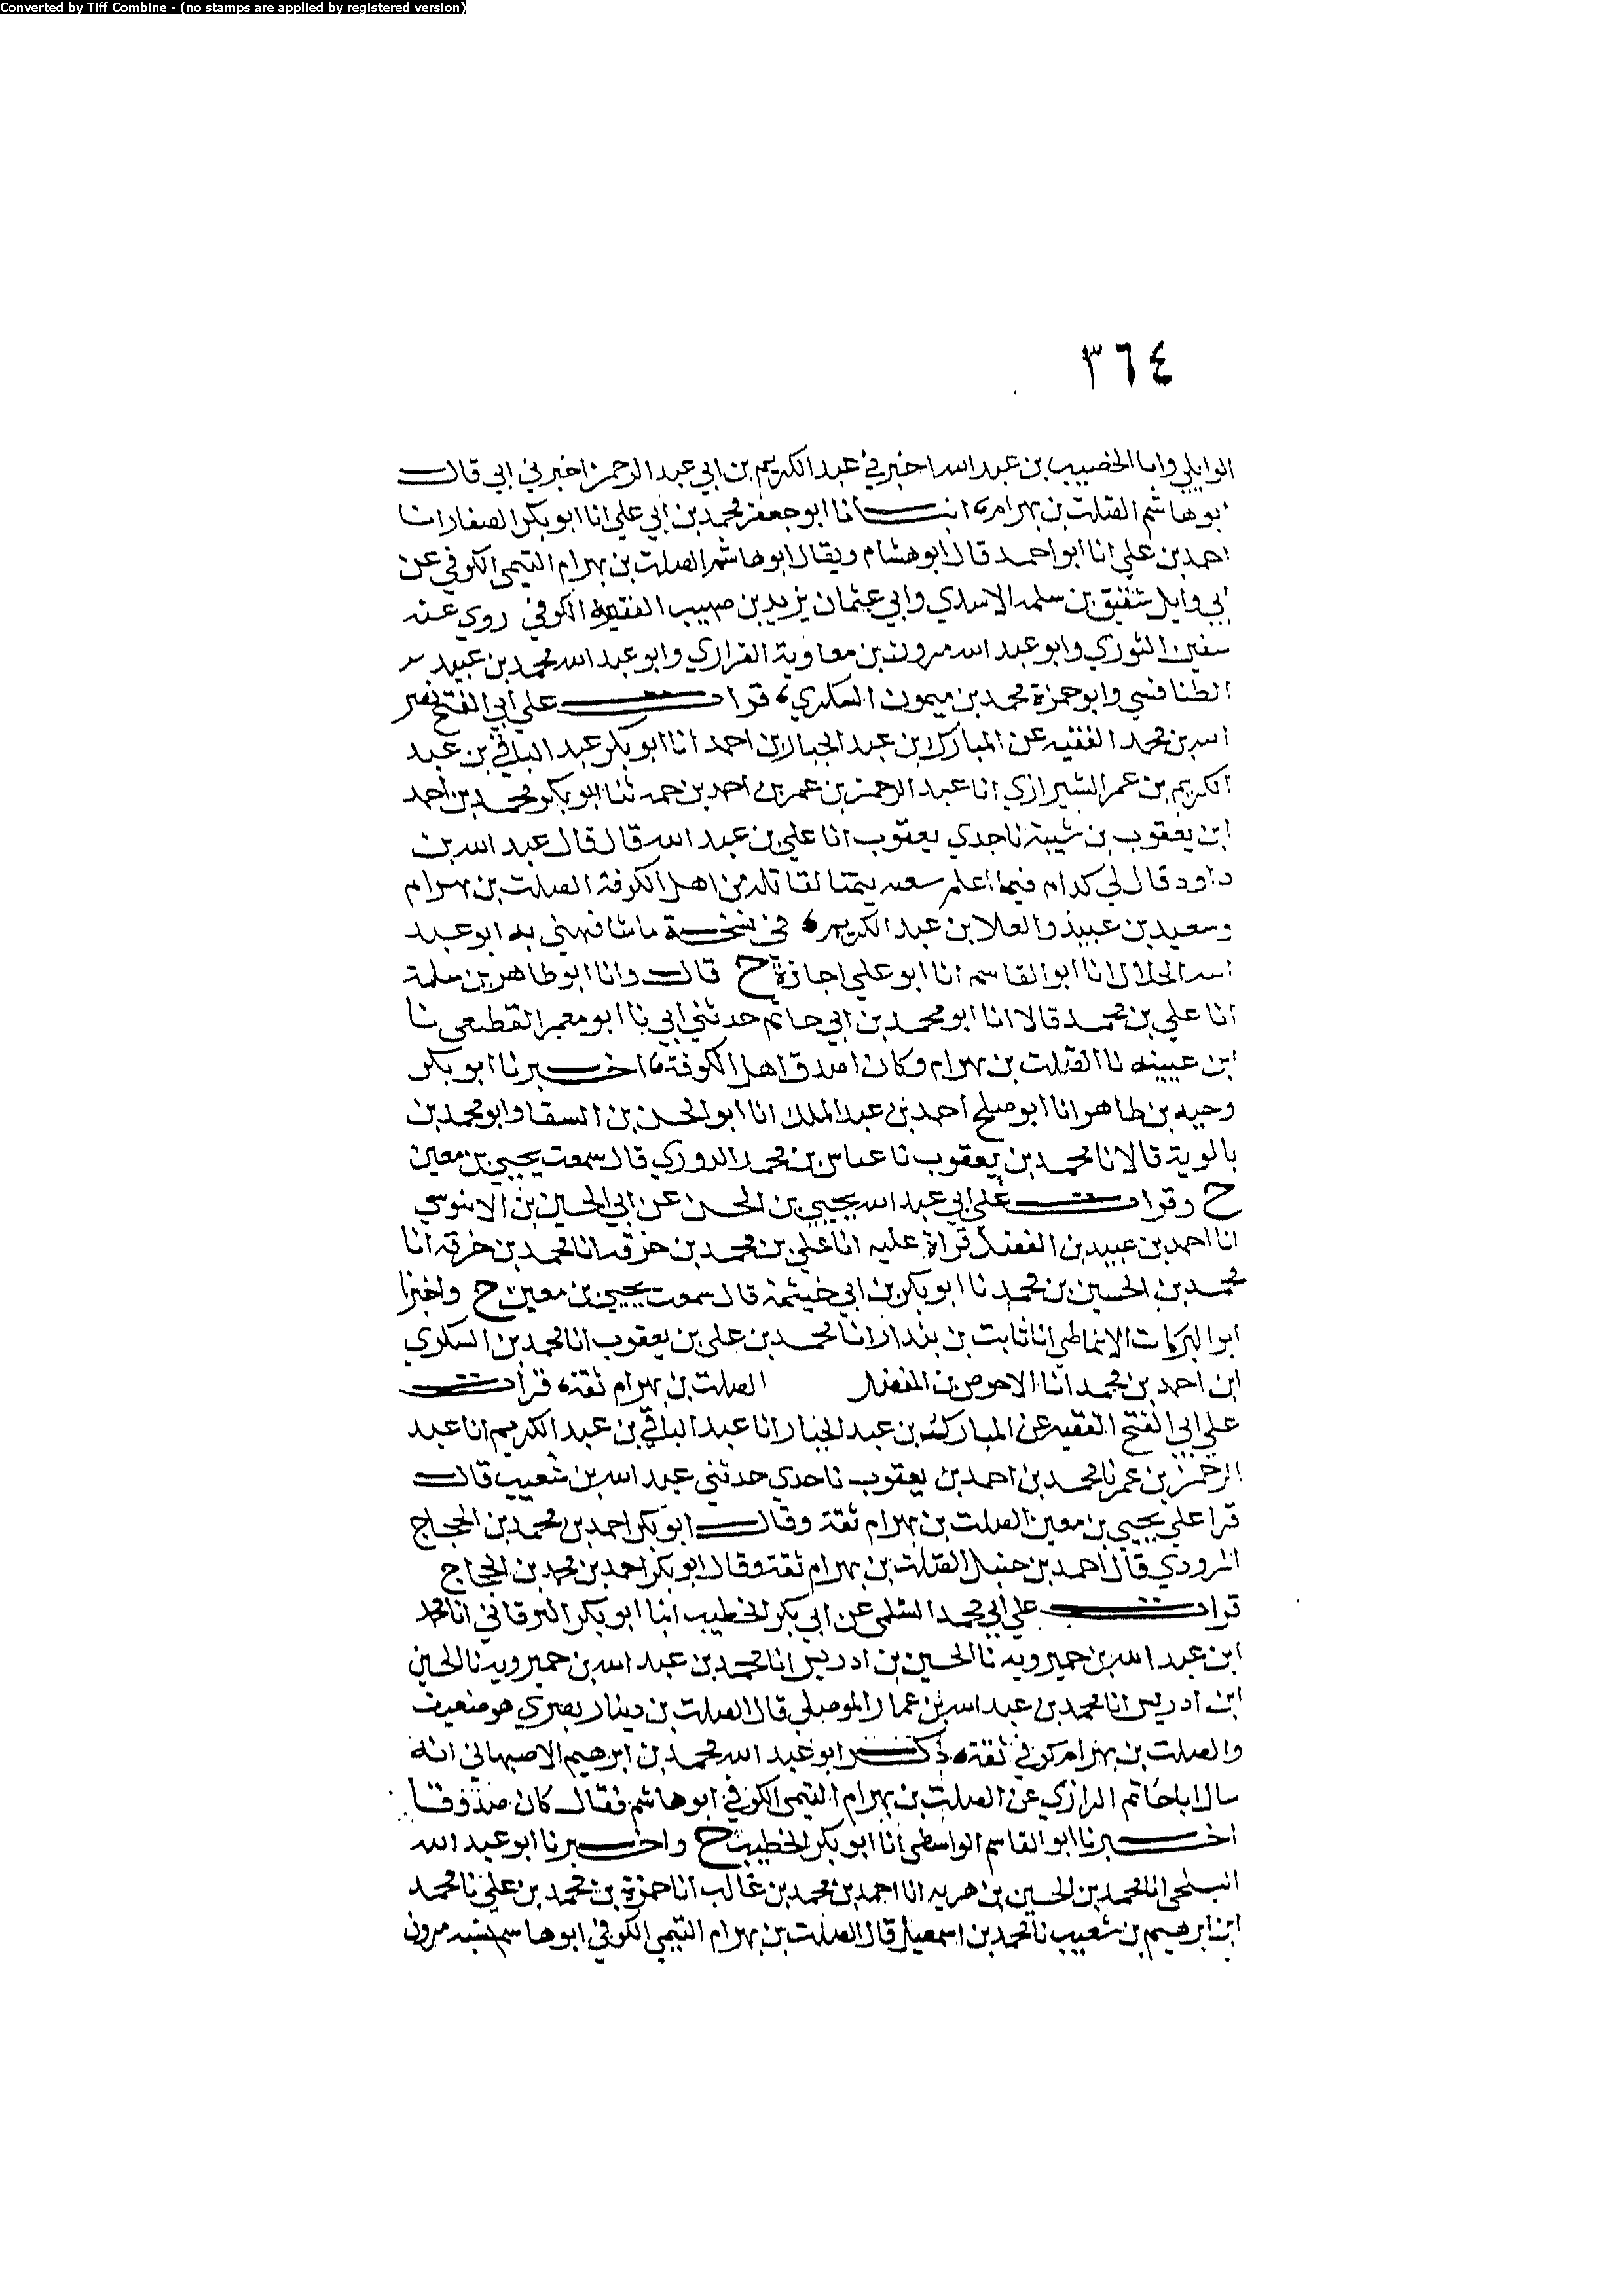 Converted by Tiff Combine - (no stamps are applied by registered version)
٣٦٤
الوايلي وابا الخصيب بن عبد الله اخبرني عبد الكريم بن ابي عبد الرحمن اخبرني ابي قال
ابو هاشم الصلت بن بهرام، انبانا ابو جعفر محمد بن ابي علي انا ابو بكر الصفار انا
احمد بن علي انا ابو احمد قال ابو هشام ويقال ابو هاشم الصلت بن بهرام التيمي الكوفي عن
ابي وايل شقيق بن سلمه الاسدي وابي عثمان يزيد بن صهيب الفقير الكوفي روي عنه
سفين الثوري وابو عبد الله مرون بن معاوية الفزاري وابو عبد الله محمد بن عبيد
الطنافسي وابو حمزة محمد بن ميمون السكري، قرات علي ابي الفتح نصر
الله بن محمد الفقيه عن المبارك بن عبد الجبار بن احمد انا ابو بكر عبد الباقي بن عبد
الكريم بن عمر الشيرازي انا عبد الرحمن بن عمر بن احمد بن حمه ثنا ابو بكر محمد بن احمد
ابن يعقوب بن شيبة نا جدي يعقوب انا علي بن عبد الله قال قال عبد الله بن
داود قال لي كدام فيما اعلم من اهل الكوفة الصلت بن بهرام
وسعيد بن عبيد والعلا بن عبد الكريم، في نسخة ما شافهني به ابو عبد
الله الخلال انا ابو القاسم انا ابو علي اجازة ح قال وانا ابو طاهر بن سلمة
انا علي بن محمد قالا انا ابو محمد بن ابي حاتم حدثني ابي نا ابو معمر القطيعي نا
ابن عيينه نا الصلت بن بهرام وكان اصدق اهل الكوفة، اخبرنا ابو بكر
وجيه بن طاهر انا ابو صلح احمد بن عبد الملك انا ابو الحسن بن السقا وابو محمد بن
بالوية قالا نا محمد بن يعقوب نا عباس بن محمد الدوري قال سمعت يحيي بن معين
ح وقرات علي ابي عبد الله يحيي بن الحسن عن ابي الحسين بن الابنوسي
انا احمد بن عبيد بن الفضل قراة عليه انا علي بن محمد بن خزفه انا محمد بن خزفه انا
محمد بن الحسين بن محمد نا ابو بكر بن ابي خيثمة قال سمعت يحيي بن معين ح واخبرنا
ابو البركات الانماطي انا ثابت بن بندار انا محمد بن علي بن يعقوب انا محمد بن السكري
ابن احمد بن محمد انا الاحوص بن المفضل الصلت بن بهرام ثقة، قرات
علي ابي الفتح الفقيه عن المبارك بن عبد الجبار انا عبد الباقي بن عبد الكريم انا عبد
الرحمن بن عمر نا محمد بن احمد بن يعقوب نا جدي حدثني عبد الله بن شعيب قال
قرا علي يحيي بن معين الصلت بن بهرام ثقة وقال ابو بكر احمد بن محمد بن الحجاج
المرودي قال احمد بن حنبل الصلت بن بهرام ثقة وقال ابو بكر احمد بن محمد بن الحجاج
قرات علي ابي محمد السلمي عن ابي بكر الخطيب انبا ابو بكر البرقاني انا محمد
ابن عبد الله بن حميرويه نا الحسين بن ادريس انا محمد بن عبد الله بن حميرويه نا الحسين
ابن ادريس انا محمد بن عبد الله بن عمار الموصلي قال الصلت بن دينار بصري هو ضعيف
والصلت بن بهرام كوفي ثقة، ذكر ابو عبد الله محمد بن ابرهيم الاصبهاني انه
سال اباحاتم الرازي عن الصلت بن بهرام التيمي الكوفي ابو هاشم فقال كان صدوقا
اخبرنا ابو القاسم الواسطي انا ابو بكر الخطيب ح واخبرنا ابو عبد الله
البلخي انا محمد بن الحسين بن هريه انا احمد بن محمد بن غالب انا حمزة بن محمد بن علي نا محمد
ابن ابرهيم بن شعيب نا محمد بن اسمعيل قال الصلت بن بهرام التيمي الكوفي ابو هاسم مرون